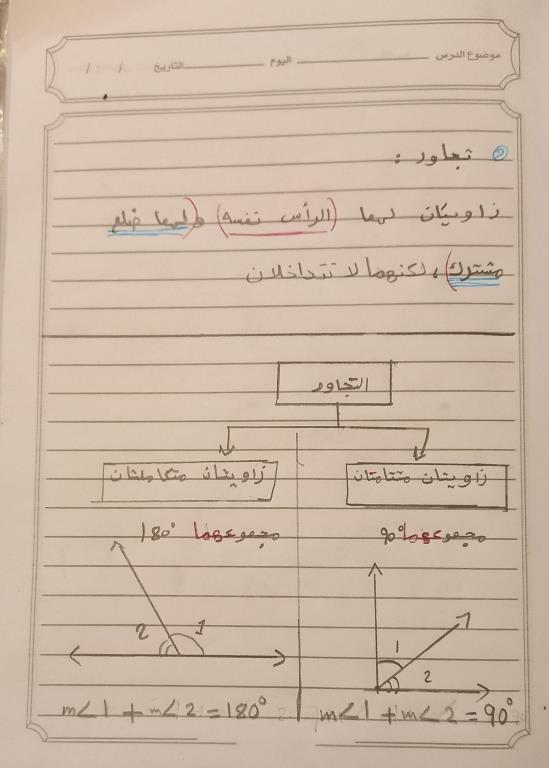 موضوع الدرس اليوم التاريخ / /
② تجاور :
زاويتان لهما (الرأس نفسه) و(لهما ضلع
مشترك)، لكنهما لا تتداخلان
التجاور
زاويتان متتامتان زاويتان متكاملتان
مجموعهما 90° مجموعهما 180°
1 2
2 1
m∠1 + m∠2 = 90° m∠1 + m∠2 = 180°